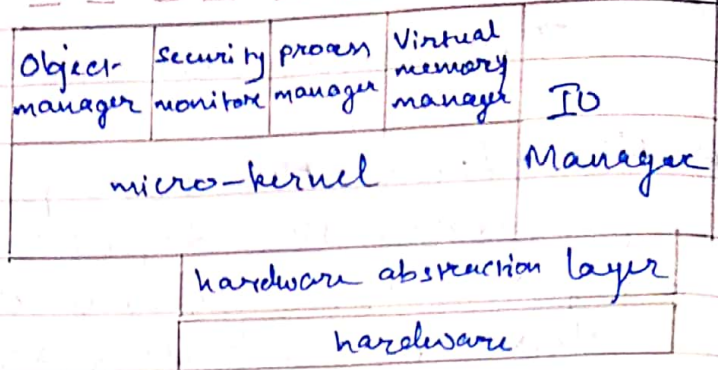 Object manager
security monitore
process manager
Virtual memory manager
IO Manager
micro-kernel
hardware abstraction layer
hardware